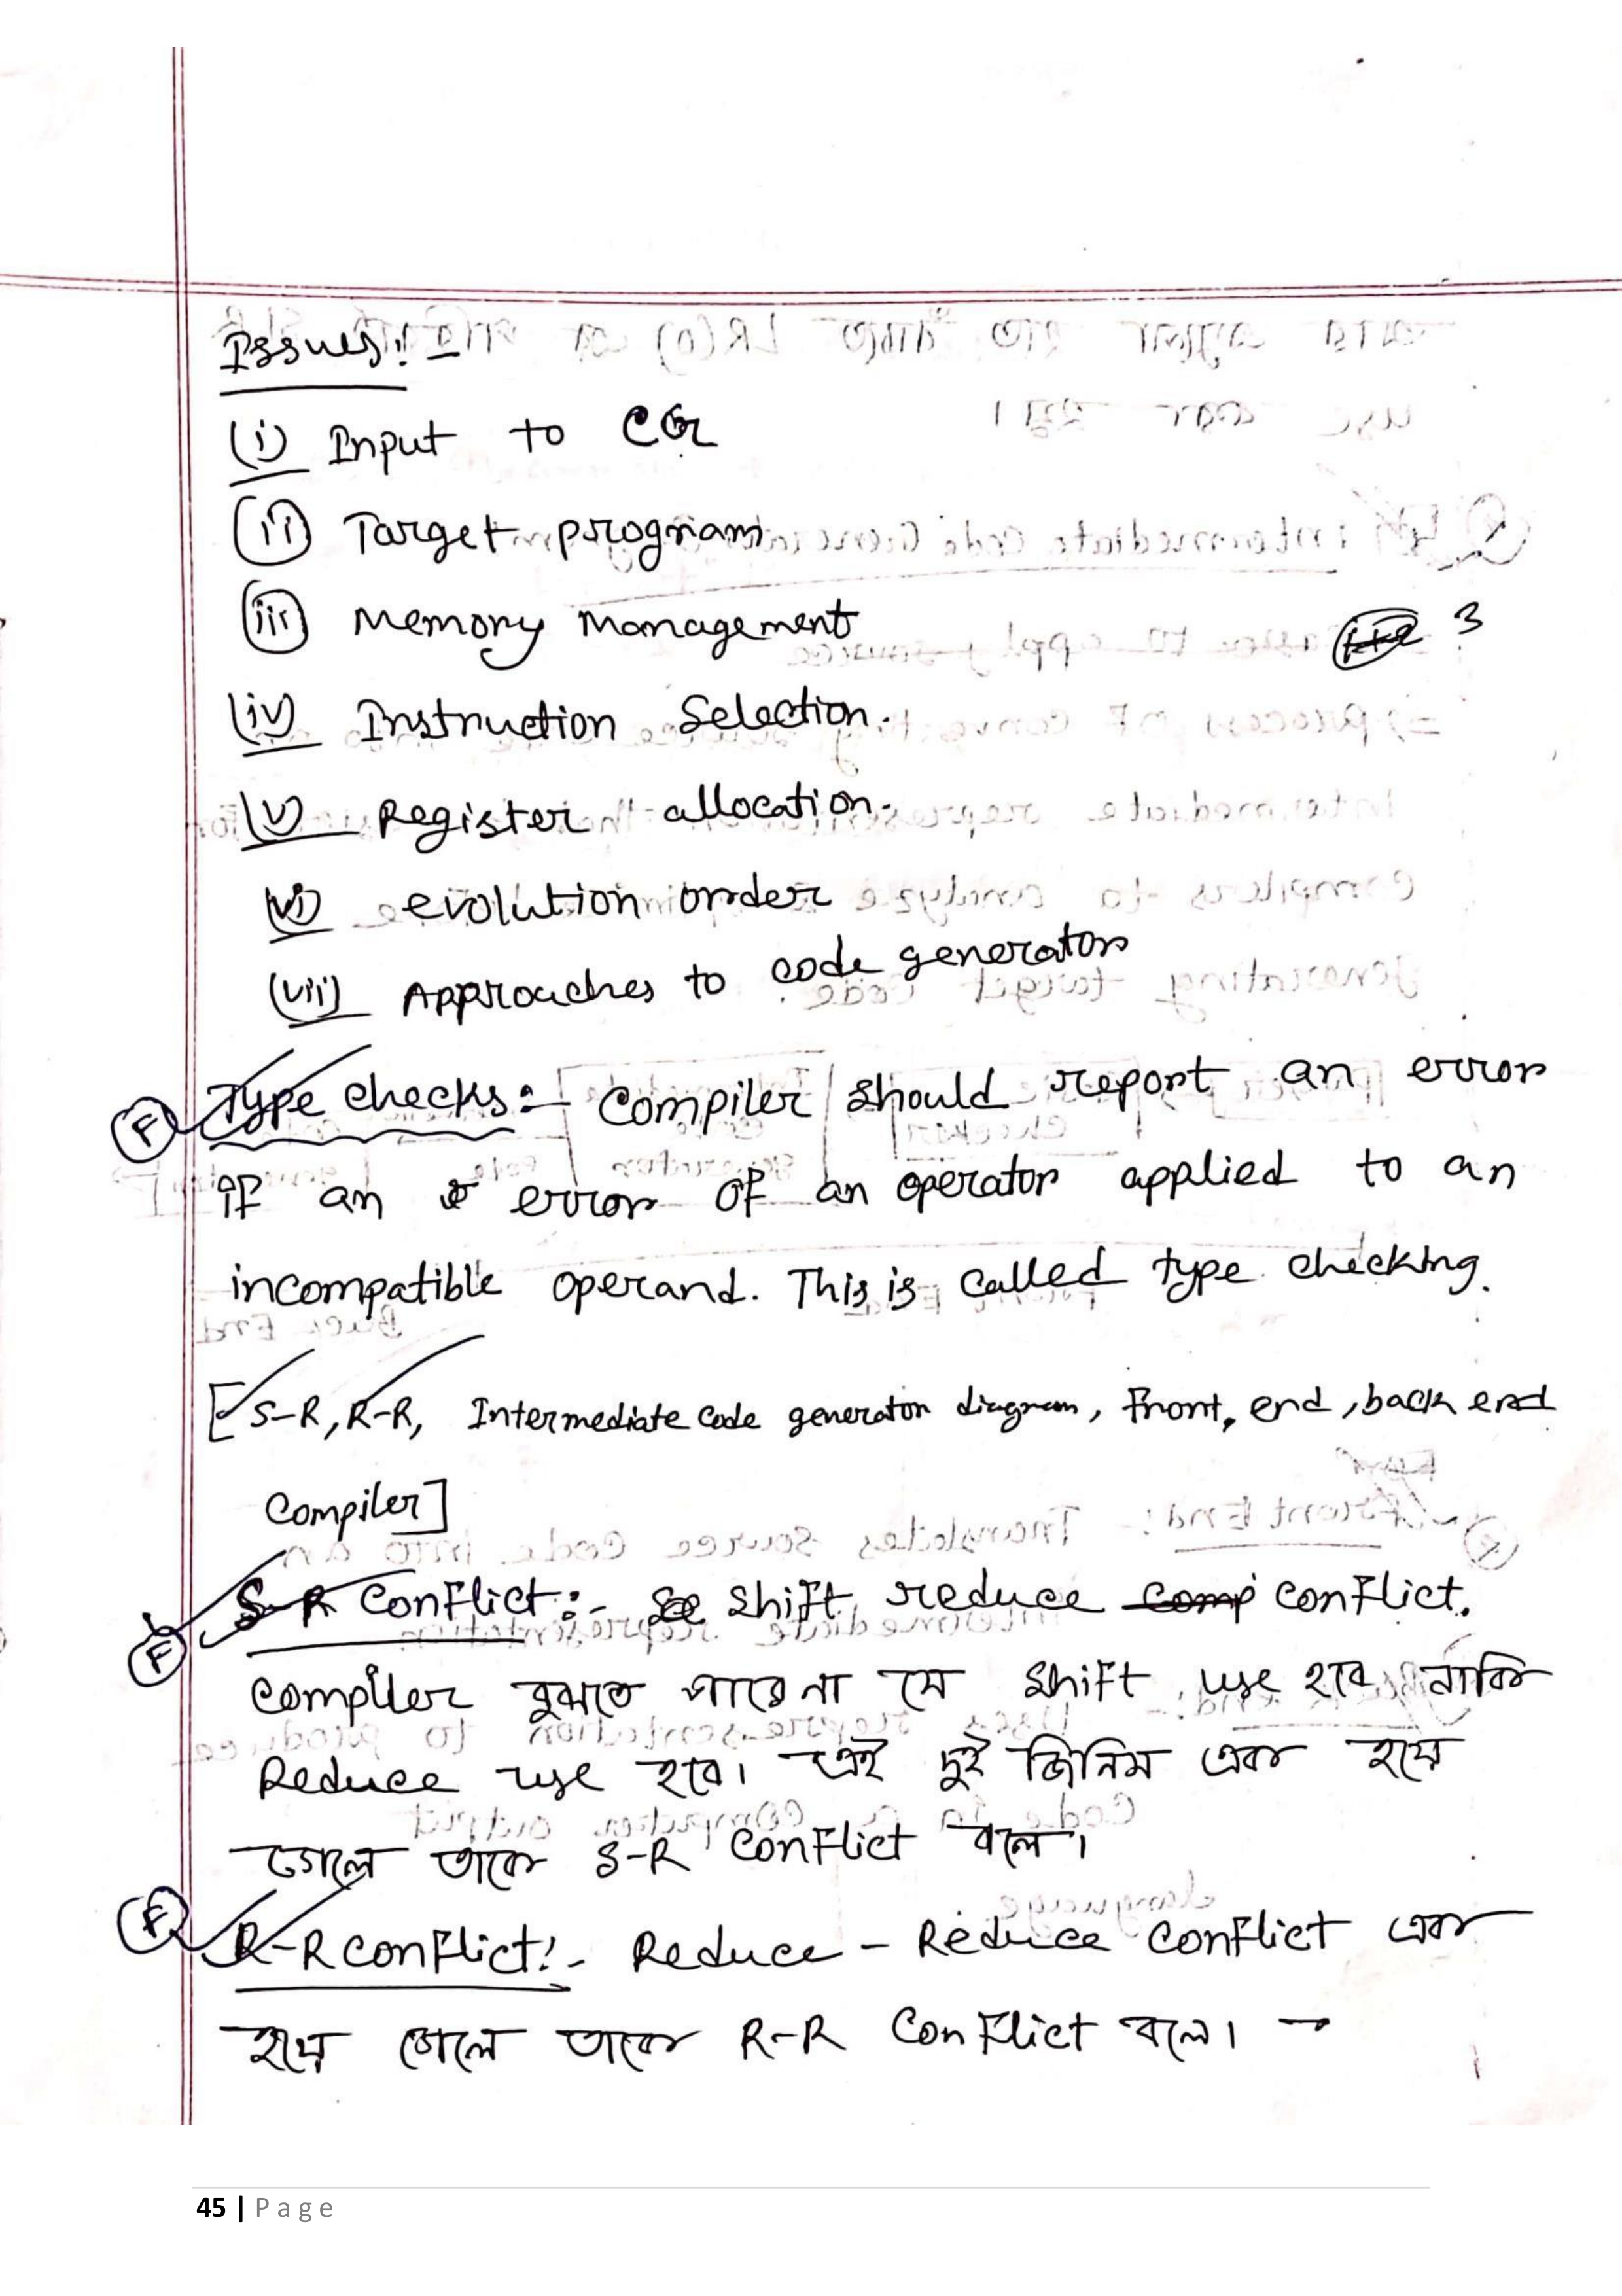 Issues:-
(i) Input to CG
(ii) Target program
(iii) Memory Management
3
(iv) Instruction Selection.
(v) Register allocation.
(vi) evolution order
(vii) Approaches to code generator
(F) Type checks:- Compiler should report an error
if an error of an operator applied to an
incompatible operand. This is called type checking.
[S-R, R-R, Intermediate code generator diagram, front, end, back end
Compiler]
(F) S-R Conflict:- Shift reduce conflict.
Compiler বুঝতে পারে না যে Shift use হবে নাকি
Reduce use হবে। এই দুই জিনিস এক হয়ে
গেলে তাকে S-R Conflict বলে।
(F) R-R conflict:- Reduce - Reduce conflict এক
হয়ে গেলে তাকে R-R Conflict বলে। →
45 | Page